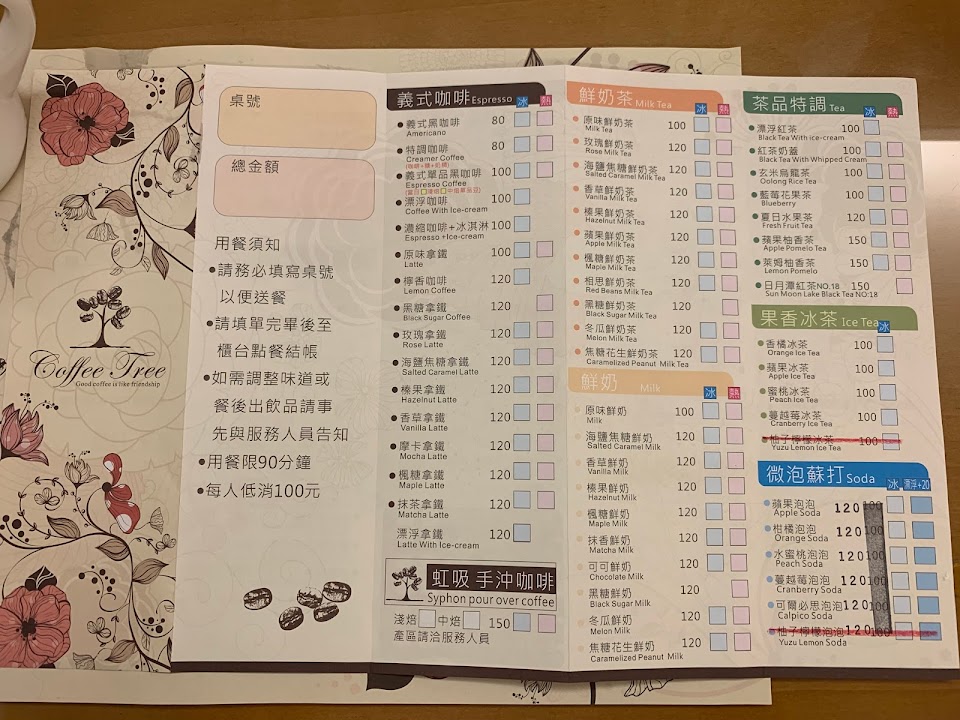 Coffee Tree
Good coffee is like friendship
桌號
總金額
用餐須知
•請務必填寫桌號
以便送餐
•請填單完畢後至
櫃台點餐結帳
•如需調整味道或
餐後出飲品請事
先與服務人員告知
•用餐限90分鐘
•每人低消100元
義式咖啡 Espresso 冰 熱
義式黑咖啡 80
Americano
特調咖啡 80
Creamer Coffee
義式單品黑咖啡 100
Espresso Coffee
漂浮咖啡 100
Coffee With Ice-cream
濃縮咖啡+冰淇淋 100
Espresso +Ice-cream
原味拿鐵 100
Latte
檸香咖啡 120
Lemon Coffee
黑糖拿鐵 120
Black Sugar Coffee
玫瑰拿鐵 120
Rose Latte
海鹽焦糖拿鐵 120
Salted Caramel Latte
榛果拿鐵 120
Hazelnut Latte
香草拿鐵 120
Vanilla Latte
摩卡拿鐵 120
Mocha Latte
楓糖拿鐵 120
Maple Latte
抹茶拿鐵 120
Matcha Latte
漂浮拿鐵 120
Latte With Ice-cream
虹吸 手沖咖啡
Syphon pour over coffee
淺焙 中焙 150
產區請洽服務人員
鮮奶茶 Milk Tea 冰 熱
原味鮮奶茶 100
Milk Tea
玫瑰鮮奶茶 120
Rose Milk Tea
海鹽焦糖鮮奶茶 120
Salted Caramel Milk Tea
香草鮮奶茶 120
Vanilla Milk Tea
榛果鮮奶茶 120
Hazelnut Milk Tea
蘋果鮮奶茶 120
Apple Milk Tea
楓糖鮮奶茶 120
Maple Milk Tea
相思鮮奶茶 120
Red Beans Milk Tea
黑糖鮮奶茶 120
Black Sugar Milk Tea
冬瓜鮮奶茶 120
Melon Milk Tea
焦糖花生鮮奶茶 120
Caramelized Peanut Milk Tea
鮮奶 Milk 冰 熱
原味鮮奶 100
Milk
海鹽焦糖鮮奶 120
Salted Caramel Milk
香草鮮奶 120
Vanilla Milk
榛果鮮奶 120
Hazelnut Milk
楓糖鮮奶 120
Maple Milk
抹香鮮奶 120
Matcha Milk
可可鮮奶 120
Chocolate Milk
黑糖鮮奶 120
Black Sugar Milk
冬瓜鮮奶 120
Melon Milk
焦糖花生鮮奶 120
Caramelized Peanut Milk
茶品特調 Tea 冰 熱
漂浮紅茶 100
Black Tea With Ice-cream
紅茶奶蓋 100
Black Tea With Whipped Cream
玄米烏龍茶 100
Oolong Rice Tea
藍莓花果茶 100
Blueberry
夏日水果茶 120
Fresh Fruit Tea
蘋果柚香茶 150
Apple Pomelo Tea
萊姆柚香茶 150
Lemon Pomelo
日月潭紅茶NO.18 150
Sun Moon Lake Black Tea NO:18
果香冰茶 Ice Tea 冰
香橘冰茶 100
Orange Ice Tea
蘋果冰茶 100
Apple Ice Tea
蜜桃冰茶 100
Peach Ice Tea
蔓越莓冰茶 100
Cranberry Ice Tea
柚子檸檬冰茶 100
Yuzu Lemon Ice Tea
微泡蘇打 Soda 冰 漂浮+20
蘋果泡泡 120 100
Apple Soda
柑橘泡泡 120 100
Orange Soda
水蜜桃泡泡 120 100
Peach Soda
蔓越莓泡泡 120 100
Cranberry Soda
可爾必思泡泡 120 100
Calpico Soda
柚子檸檬泡泡 120 100
Yuzu Lemon Soda